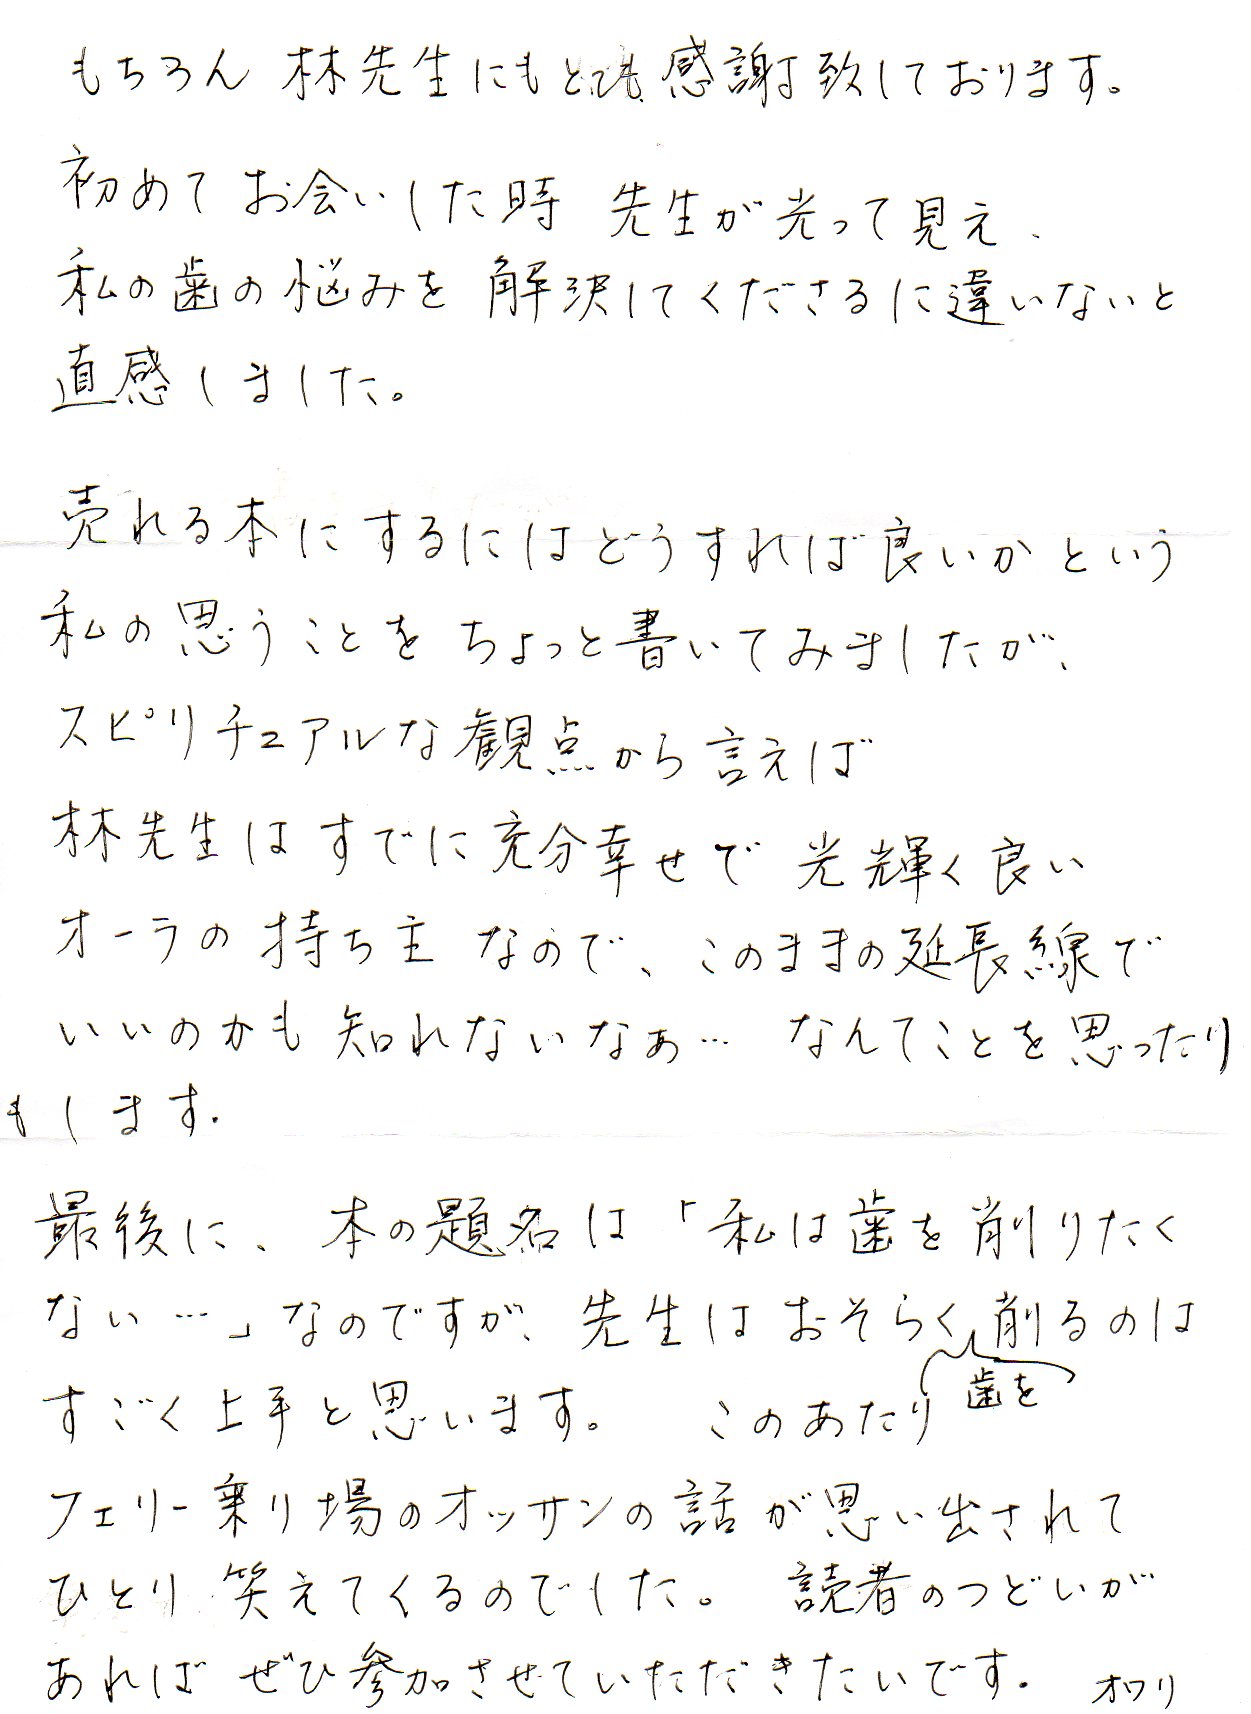 もちろん 林先生にもとても感謝致しております。
初めてお会いした時 先生が光って見え、
私の歯の悩みを 解決してくださるに違いないと
直感しました。
売れる本にするにはどうすれば良いかという
私の思うことをちょっと書いてみましたが、
スピリチュアルな観点から言えば
林先生はすでに充分幸せで 光輝く良い
オーラの持ち主なので、このままの延長線で
いいのかも知れないなぁ… なんてことを思ったり
もします.
最後に、本の題名は「私は歯を削りたく
ない…」なのですが、先生はおそらく削るのは
歯を
すごく上手と思います。 このあたり
フェリー乗り場のオッサンの話が思い出されて
ひとり笑えてくるのでした。 読者のつどいが
あればぜひ参加させていただきたいです. オワリ